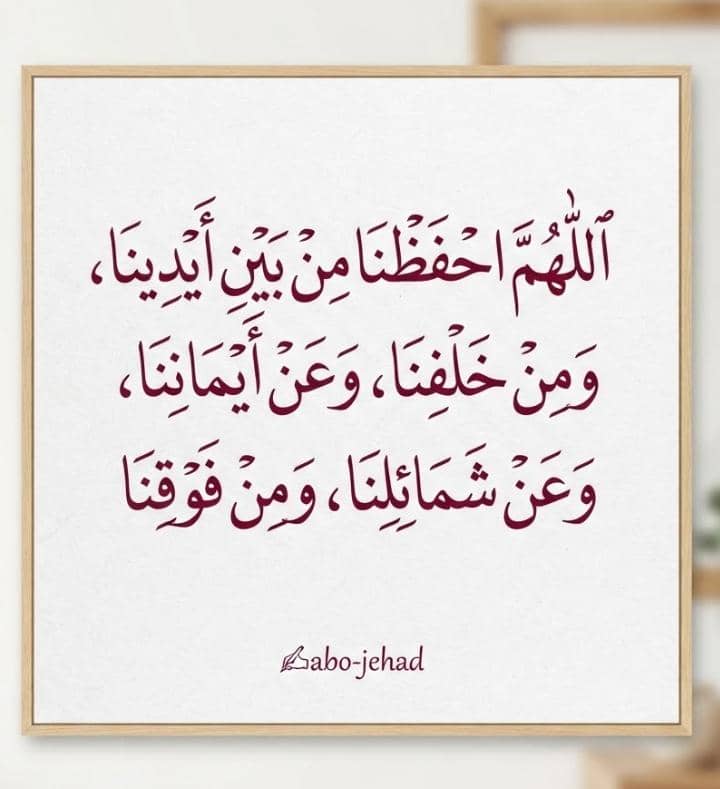 ٱللَّهُمَّ احْفَظْنَا مِنْ بَيْنِ أَيْدِينَا،
وَمِنْ خَلْفِنَا، وَعَنْ أَيْمَانِنَا،
وَعَنْ شَمَائِلِنَا، وَمِنْ فَوْقِنَا
abo-jehad